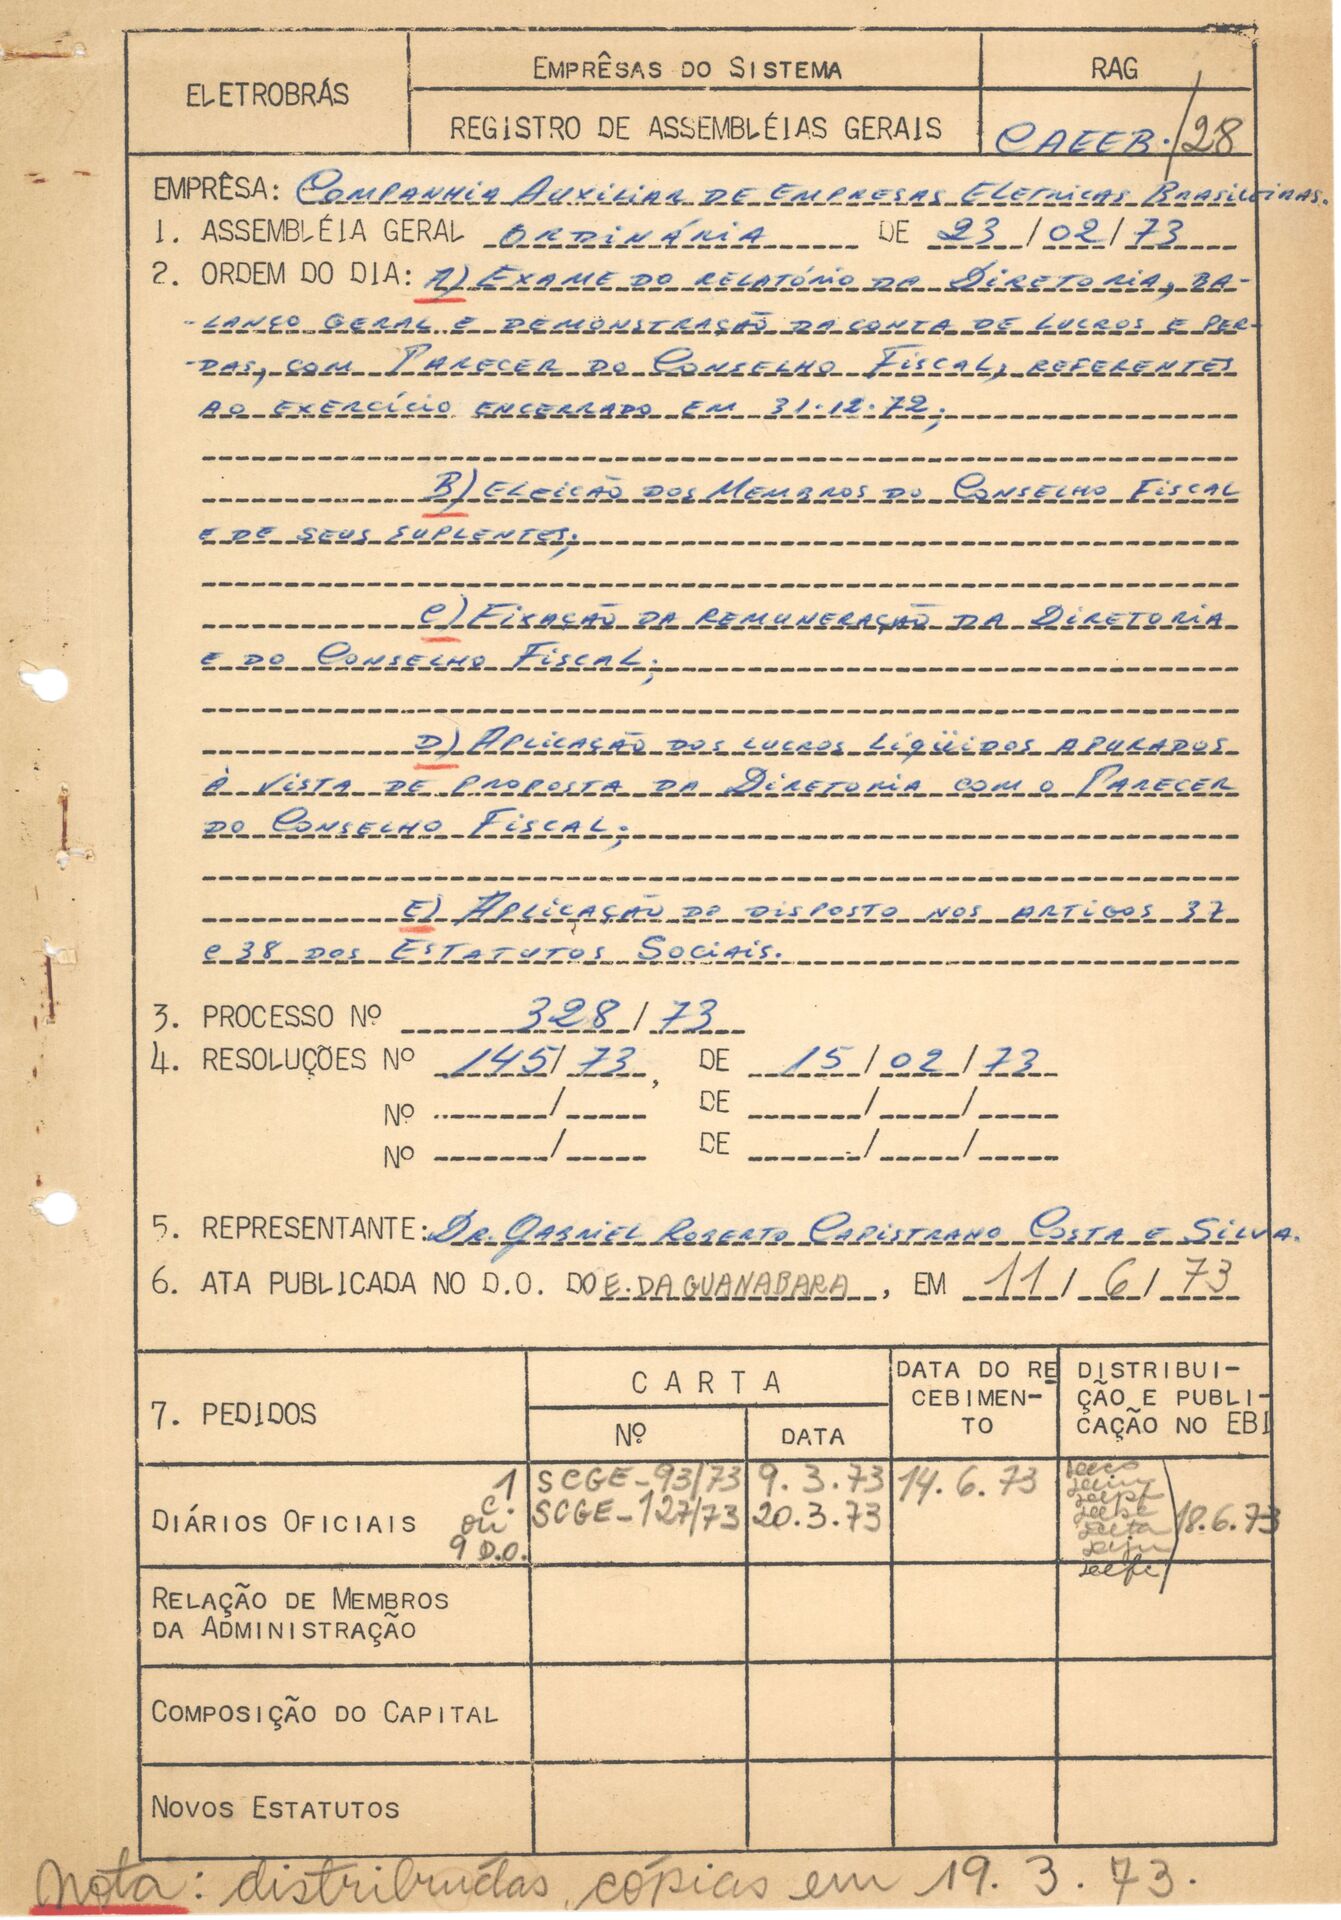 ELETROBRÁS
EMPRÊSAS DO SISTEMA
RAG
REGISTRO DE ASSEMBLÉIAS GERAIS
CAEEB./28
EMPRÊSA: COMPANHIA AUXILIAR DE EMPRESAS ELETRICAS BRASILEIRAS.
1. ASSEMBLÉIA GERAL ORDINÁRIA DE 23/02/73
2. ORDEM DO DIA: A) EXAME DO RELATÓRIO DA DIRETORIA, BA-
-LANÇO GERAL E DEMONSTRAÇÃO DA CONTA DE LUCROS E PER-
-DAS, COM PARECER DO CONSELHO FISCAL, REFERENTES
AO EXERCÍCIO ENCERRADO EM 31.12.72;
B) ELEIÇÃO DOS MEMBROS DO CONSELHO FISCAL
E DE SEUS SUPLENTES;
C) FIXAÇÃO DA REMUNERAÇÃO DA DIRETORIA
E DO CONSELHO FISCAL;
D) APLICAÇÃO DOS LUCROS LÍQÜIDOS APURADOS
À VISTA DE PROPOSTA DA DIRETORIA COM O PARECER
DO CONSELHO FISCAL;
E) APLICAÇÃO DO DISPOSTO NOS ARTIGOS 37
E 38 DOS ESTATUTOS SOCIAIS.
3. PROCESSO Nº 328/73
4. RESOLUÇÕES Nº 145/73, DE 15/02/73
Nº / DE / /
Nº / DE / /
5. REPRESENTANTE: DR. GABRIEL ROBERTO CAPISTRANO COSTA E SILVA.
6. ATA PUBLICADA NO D.O. DO E. DA GUANABARA, EM 11/6/73
7. PEDIDOS
CARTA
Nº
DATA
DATA DO RE
CEBIMEN-
TO
DISTRIBUI-
ÇÃO E PUBLI-
CAÇÃO NO EBI
DIÁRIOS OFICIAIS
1
C.
ou
9 D.O.
SCGE-93/73 9.3.73 14.6.73
SCGE-127/73 20.3.73
18.6.73
RELAÇÃO DE MEMBROS
DA ADMINISTRAÇÃO
COMPOSIÇÃO DO CAPITAL
NOVOS ESTATUTOS
Nota: distribuídas cópias em 19.3.73.